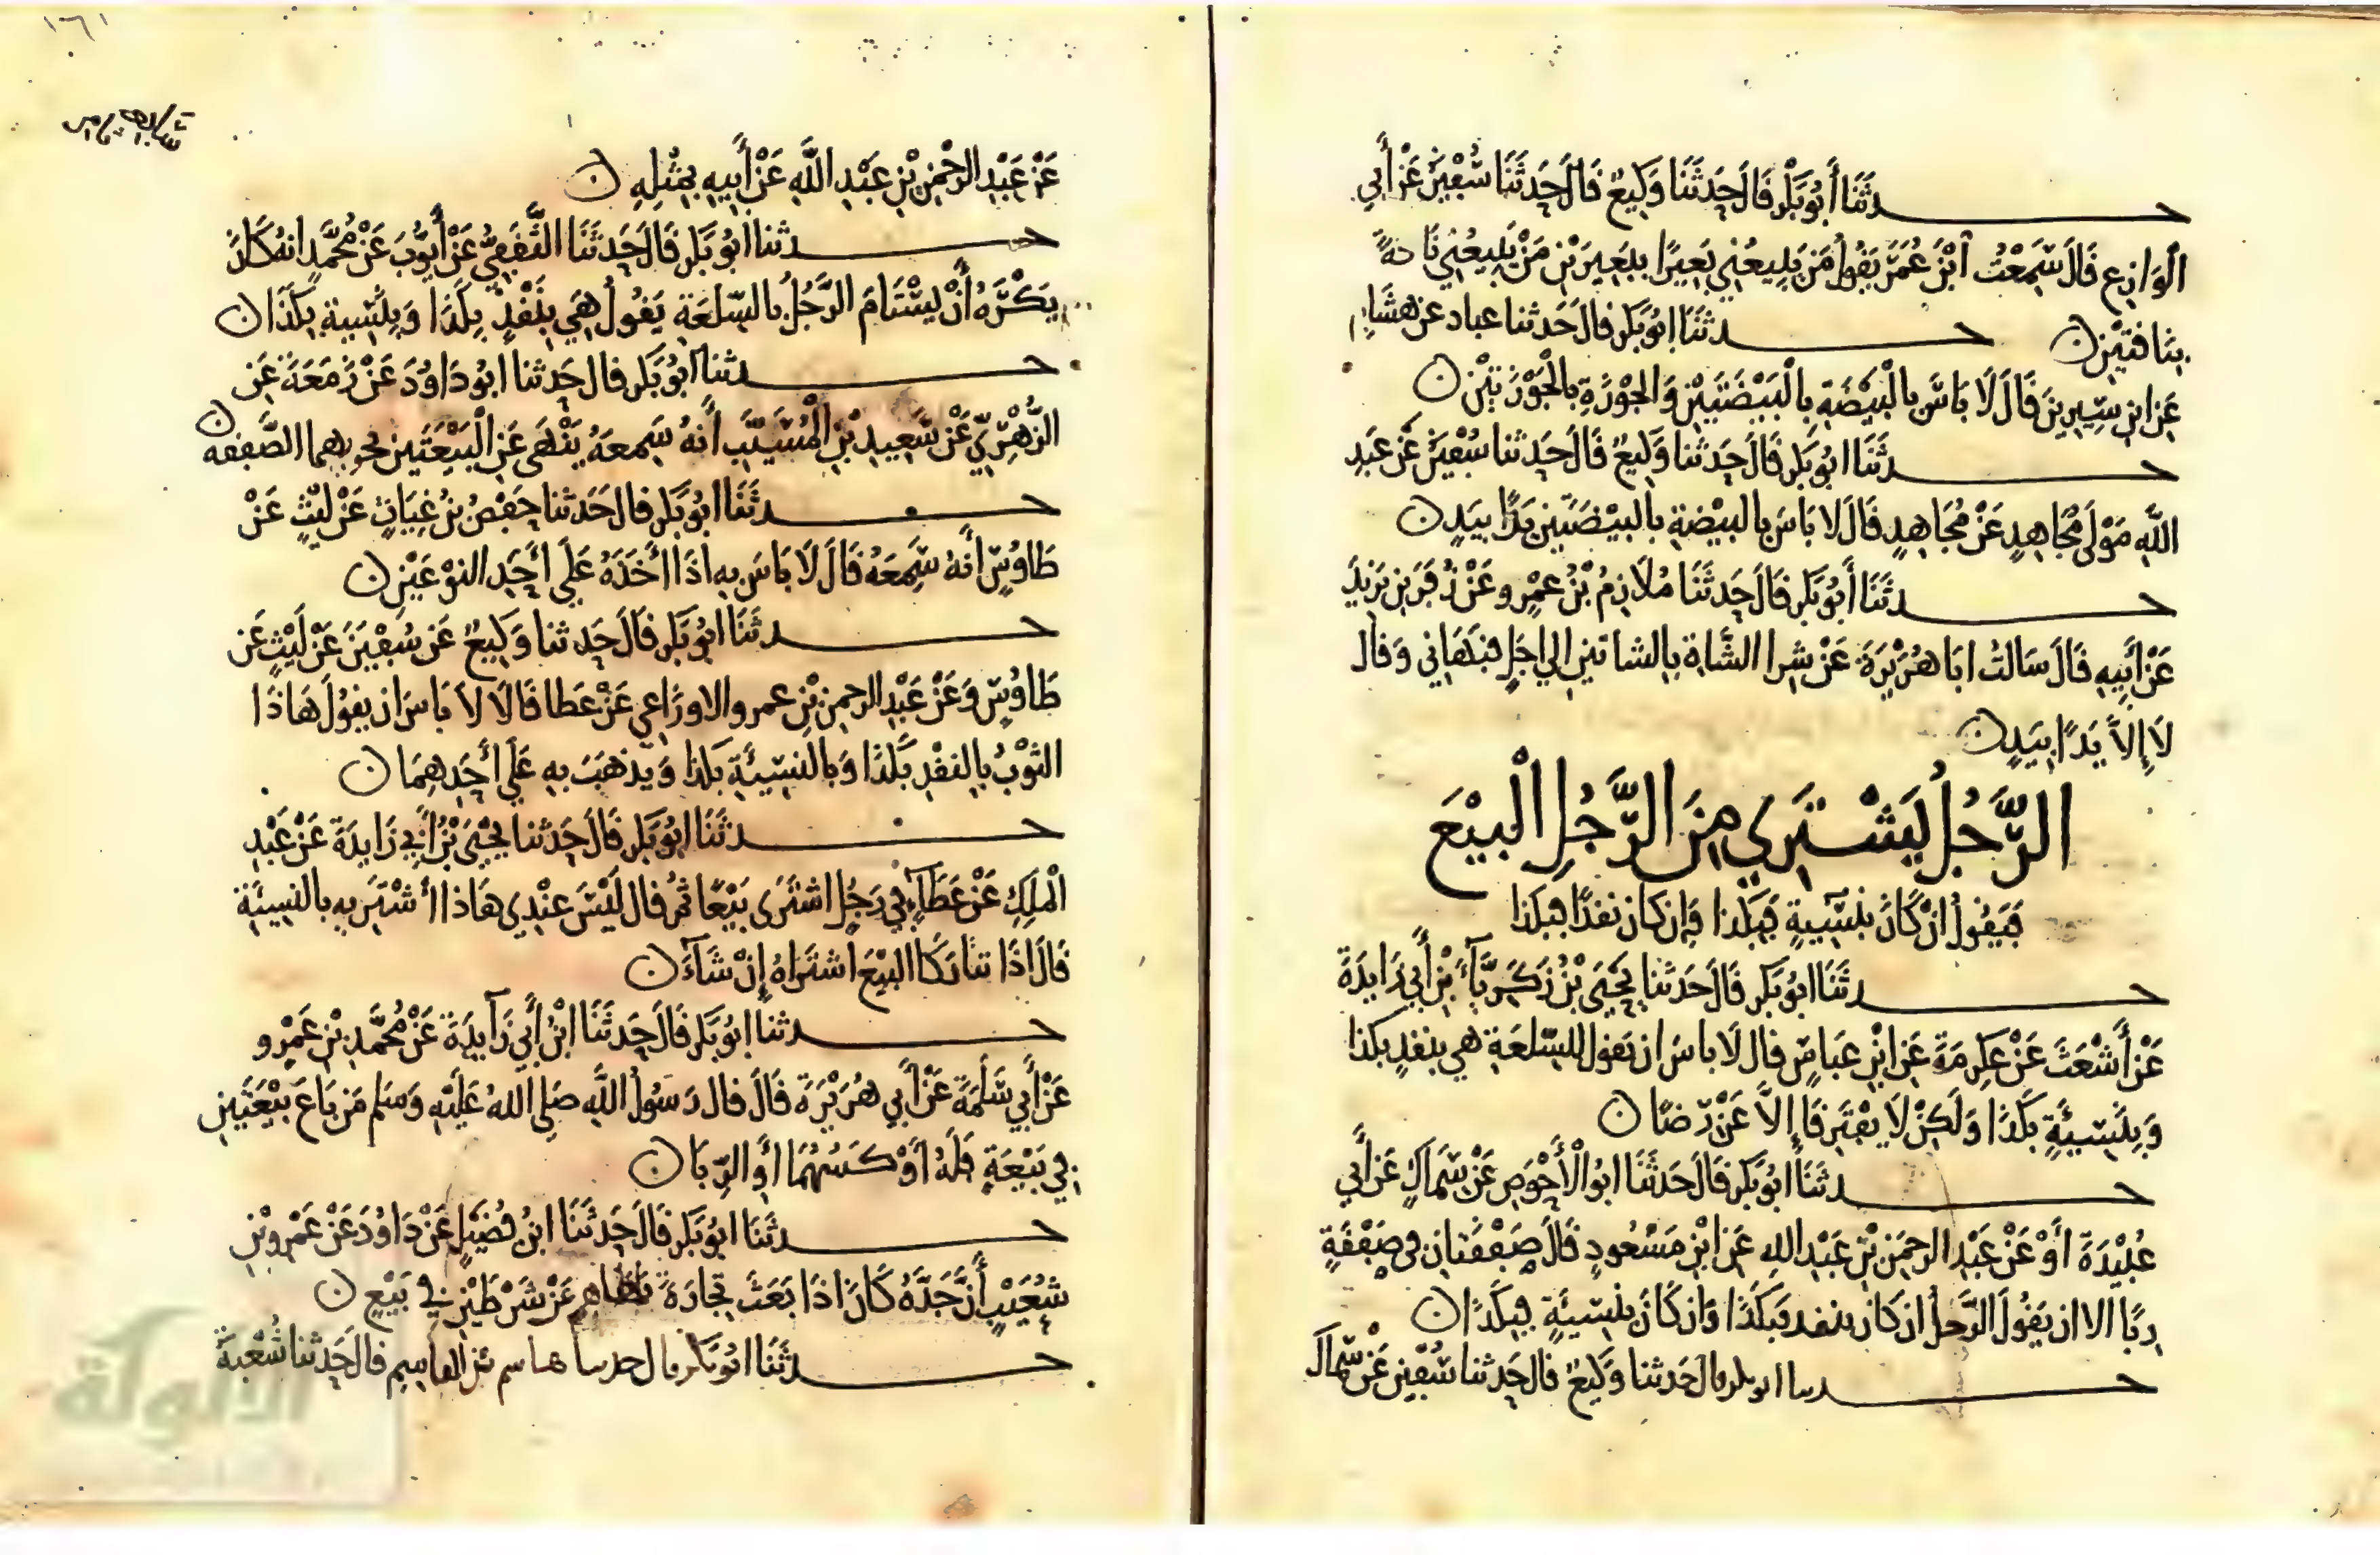 حدثنا أبو بكر قال حدثنا وكيع قال حدثنا سفين عن أبي
الوازع قال سمعت ابن عمر يقول من يبيعني بعيرا ببعيرين من يبيعني ناقة
بناقتين حدثنا ابو بكر قال حدثنا عباد عن هشام
عن ابن سيرين قال لا باس بالبيضة بالبيضتين والجوزة بالجوزتين
حدثنا ابو بكر قال حدثنا وكيع قال حدثنا سفين عن عبد
الله مولى مجاهد عن مجاهد قال لا باس بالبيضة بالبيضتين يدا بيد
حدثنا أبو بكر قال حدثنا ملازم بن عمرو عن زفر بن يزيد
عن أبيه قال سالت ابا هريرة عن شرا الشاة بالشاتين الي اجل فنهاني وقال
لا إلا يدا بيد
الرجل يشتري من الرجل البيع
فيقول ان كان بنسية فبكذا وإن كان نقدا فبكذا
حدثنا ابو بكر قال حدثنا يحيى بن زكرياء بن أبي زايدة
عن أشعث عن عكرمة عن ابن عباس قال لا باس ان يقول للسلعة هي بنقد بكذا
وبنسيئة بكذا ولكن لا يفترقا إلا عن رضا
حدثنا ابو بكر قال حدثنا ابو الأحوص عن سماك عن أبي
عبيدة أو عن عبد الرحمن بن عبد الله عن ابن مسعود قال صفقتان في صفقة
ربا الا ان يقول الرجل ان كان بنقد فبكذا وان كان بنسيئة فبكذا
حدثنا ابو بكر قال حدثنا وكيع قال حدثنا سفين عن سماك
١٦١
عن عبد الرحمن بن عبد الله عن أبيه بمثله
حدثنا ابو بكر قال حدثنا الثقفي عن أيوب عن محمد انه كان
يكره أن يستام الرجل بالسلعة يقول هي بنقد بكذا وبنسية بكذا
حدثنا ابو بكر قال حدثنا ابو داود عن زمعة عن
الزهري عن سعيد بن المسيب أنه سمعه ينهى عن البيعتين بهما الصفقه
حدثنا ابو بكر قال حدثنا حفص بن غياث عن ليث عن
طاوس أنه سمعه قال لا باس به اذا اخذه على أحد النوعين
حدثنا ابو بكر قال حدثنا وكيع عن سفين عن ليث عن
طاوس وعن عبد الرحمن بن عمرو الاوزاعي عن عطا قالا لا باس ان يقول هاذا
الثوب بالنقد بكذا وبالنسيئة بكذا ويذهب به على أحدهما
حدثنا ابو بكر قال حدثنا يحيى بن أبي زايدة عن عبد
الملك عن عطاء في رجل اشترى بيعا ثم قال ليس عندي هاذا أشتريه بالنسيئة
قال اذا تتاركا البيع اشتراه إن شاء
حدثنا ابو بكر قال حدثنا ابن أبي زايدة عن محمد بن عمرو
عن أبي سلمة عن أبي هريرة قال قال رسول الله صلى الله عليه وسلم من باع بيعتين
في بيعة فله أوكسهما أو الربا
حدثنا ابو بكر قال حدثنا ابن فضيل عن داود عن عمرو بن
شعيب أن جده كان اذا بعث تجارة نهاهم عن شرطين في بيع
حدثنا ابو بكر قال حدثنا هاسم بن القاسم قال حدثنا شعبة
الألوكة